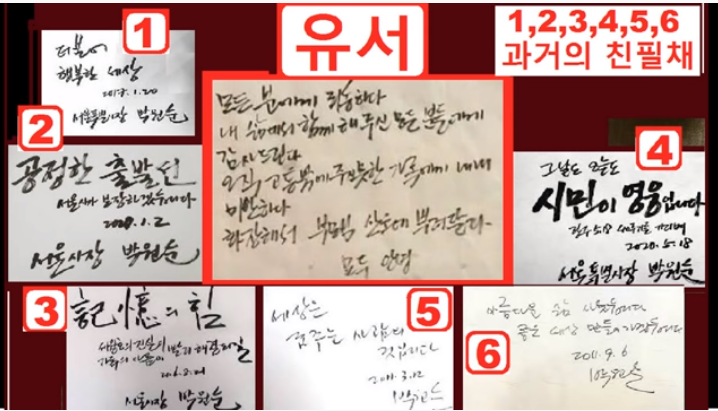 1
더불어
행복한 세상
2018.1.20
서울특별시장 박원순
유서
모든 분에게 죄송하다
내 삶에서 함께 해주신 모든 분들에게
감사드린다
오직 고통밖에 주지 못한 가족에게 내내
미안하다
화장해서 부모님 산소에 뿌려달라
모두 안녕
1,2,3,4,5,6
과거의 친필채
2
공정한 출발선
서울시가 보장하겠습니다
2020.1.2
서울시장 박원순
4
그날도 오늘도
시민이 영웅입니다
2020.5.18
서울특별시장 박원순
3
記憶의 힘
서울시장 박원순
5
세상은
꿈꾸는 사람의
것입니다
2011.3.12
박원순
6
아름다운
좋은 세상 만들어가겠습니다
2011.9.6
박원순